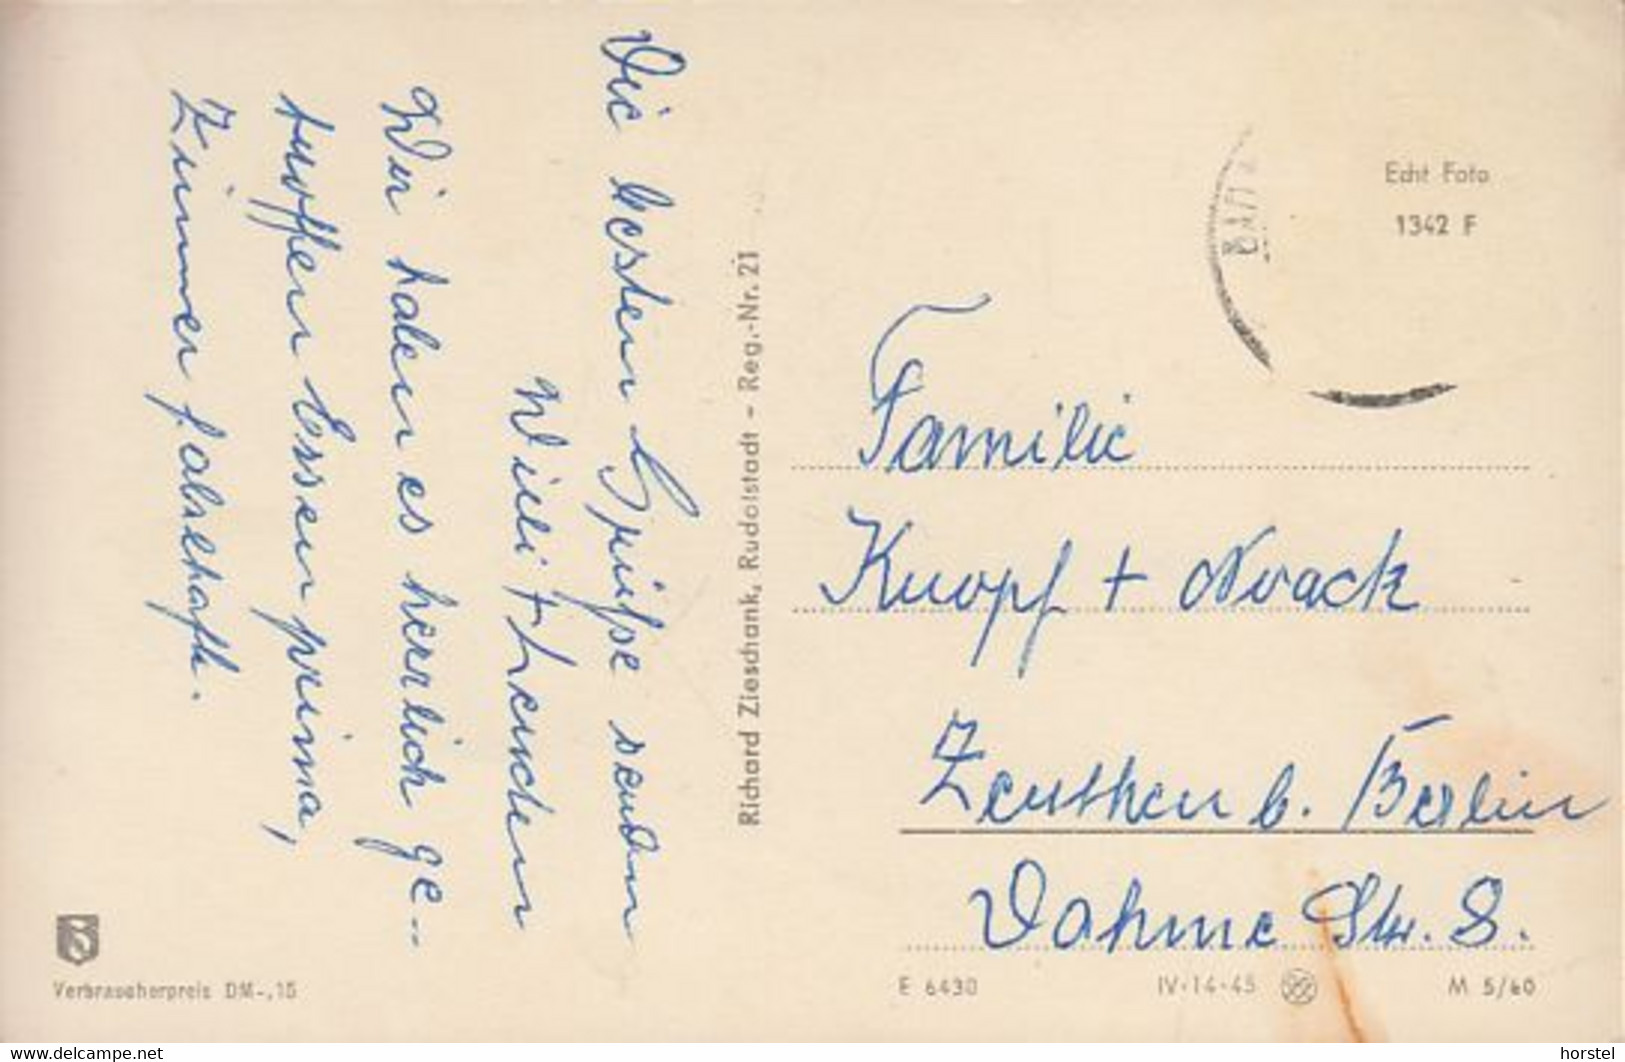 Die besten Grüße senden
Willi +
Wir haben es herrlich ge-
troffen Essen prima,
Zimmer fabelhaft.
Richard Zieschank, Rudolstadt - Reg.-Nr. 21
Echt Foto
1342 F
Familie
Knopf + Noack
Zeuthen b. Berlin
Dahme Str. 8.
Verbraucherpreis DM-,15
E 6430
IV-14-45
M 5/60
www.delcampe.net
horstel